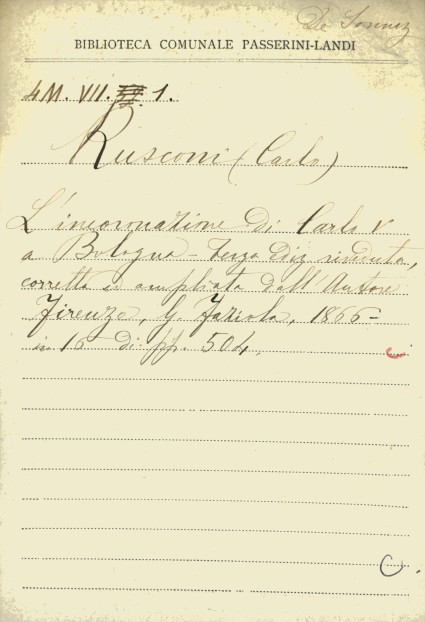 BIBLIOTECA COMUNALE PASSERINI-LANDI
4M. VII. 1.
Rusconi (Carlo)
L'incoronazione di Carlo V
a Bologna - terza Diz riveduta,
corretta ed ampliata dall'Autore
Firenze, G. Fariola, 1866 -
in 16 di pp. 504.